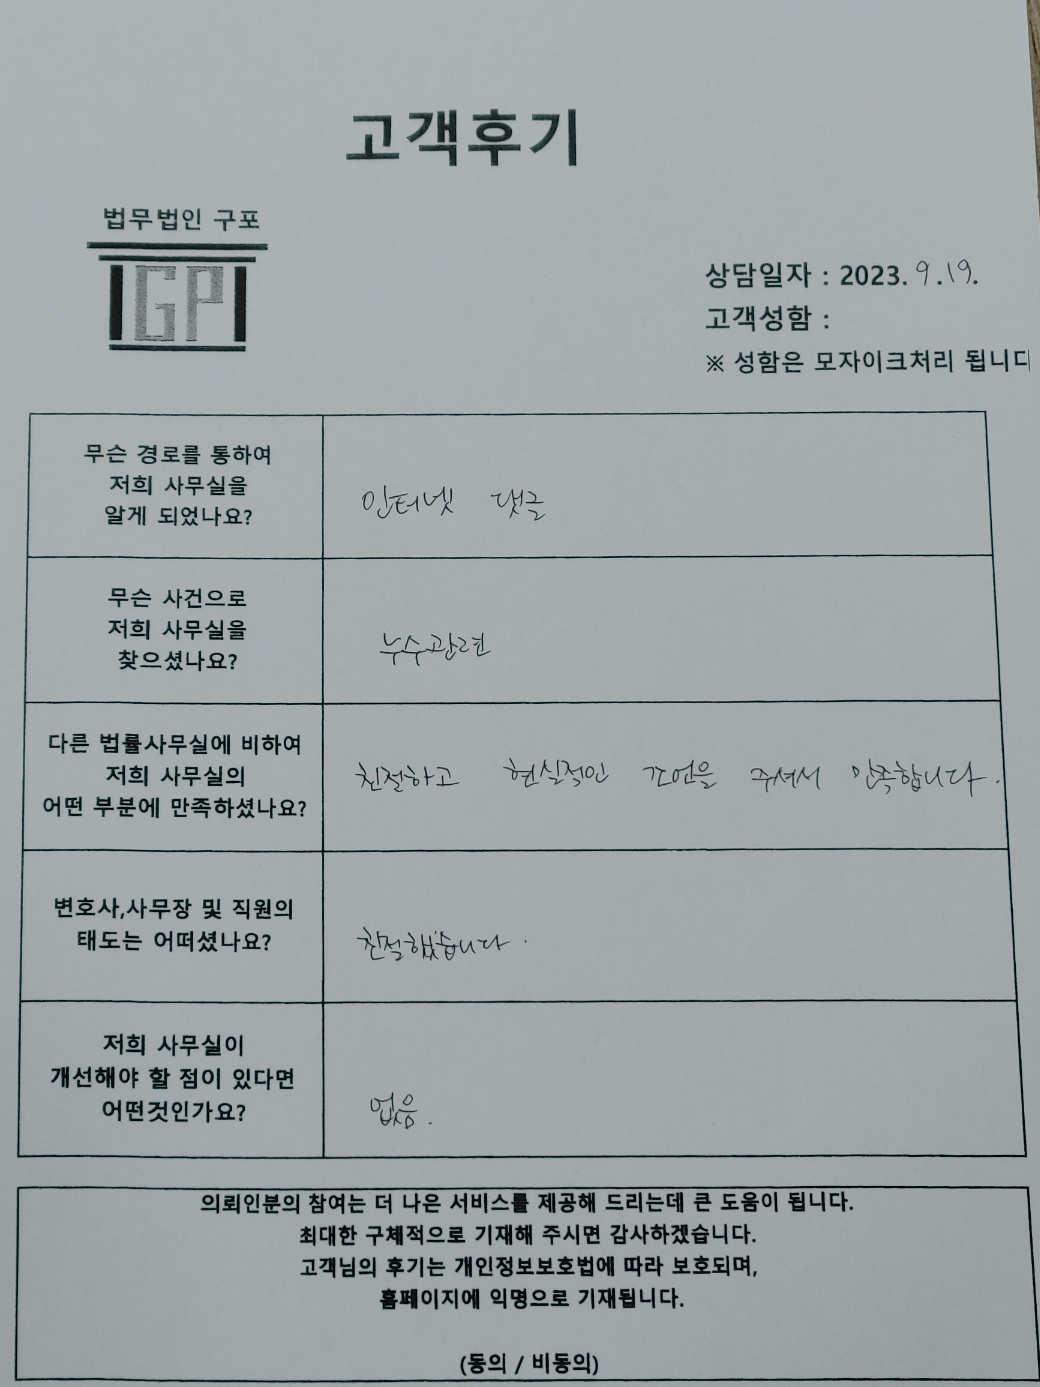 고객후기
법무법인 구포
GP
상담일자 : 2023. 9.19.
고객성함 :
※ 성함은 모자이크처리 됩니다
무슨 경로를 통하여
저희 사무실을
알게 되었나요?
인터넷 댓글
무슨 사건으로
저희 사무실을
찾으셨나요?
누수관련
다른 법률사무실에 비하여
저희 사무실의
어떤 부분에 만족하셨나요?
친절하고 현실적인 조언을 주셔서 만족합니다.
변호사,사무장 및 직원의
태도는 어떠셨나요?
친절했습니다.
저희 사무실이
개선해야 할 점이 있다면
어떤것인가요?
없음.
의뢰인분의 참여는 더 나은 서비스를 제공해 드리는데 큰 도움이 됩니다.
최대한 구체적으로 기재해 주시면 감사하겠습니다.
고객님의 후기는 개인정보보호법에 따라 보호되며,
홈페이지에 익명으로 기재됩니다.
(동의 / 비동의)